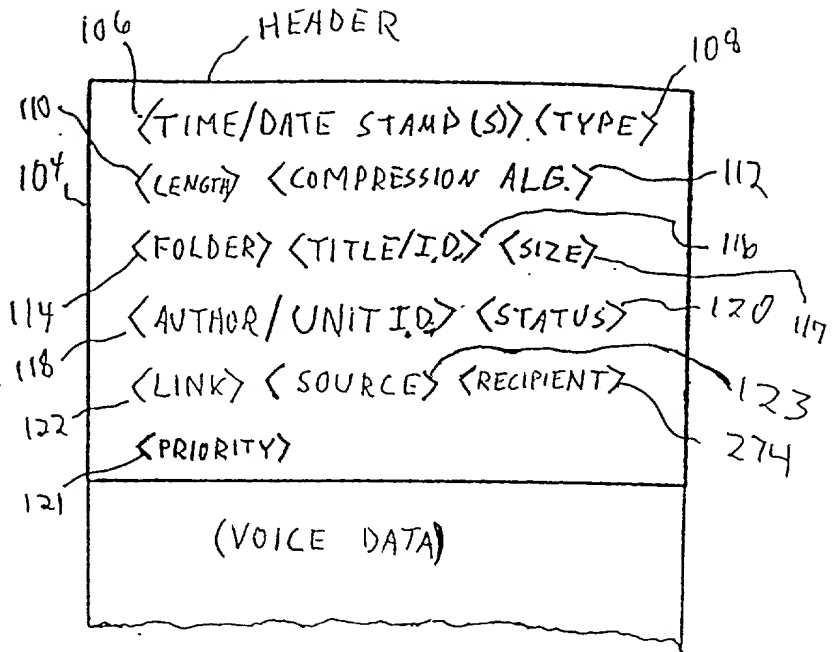 106 HEADER 108
<TIME/DATE STAMP(S)> <TYPE>
110 <LENGTH> <COMPRESSION ALG.> 112
104
<FOLDER> <TITLE/I.D.> <SIZE> 116
114 <AUTHOR/UNIT I.D.> <STATUS> 120 117
118
<LINK> <SOURCE> <RECIPIENT> 123
122
<PRIORITY> 274
121
(VOICE DATA)